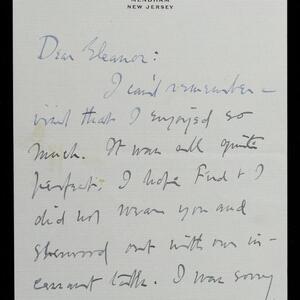 MENDHAM
NEW JERSEY
Dear Eleanor:
I can't remember a
visit that I enjoyed so
much. It was all quite
perfect. I hope Fred & I
did not wear you and
Sherwood out with our in-
cessant talk. I was sorry